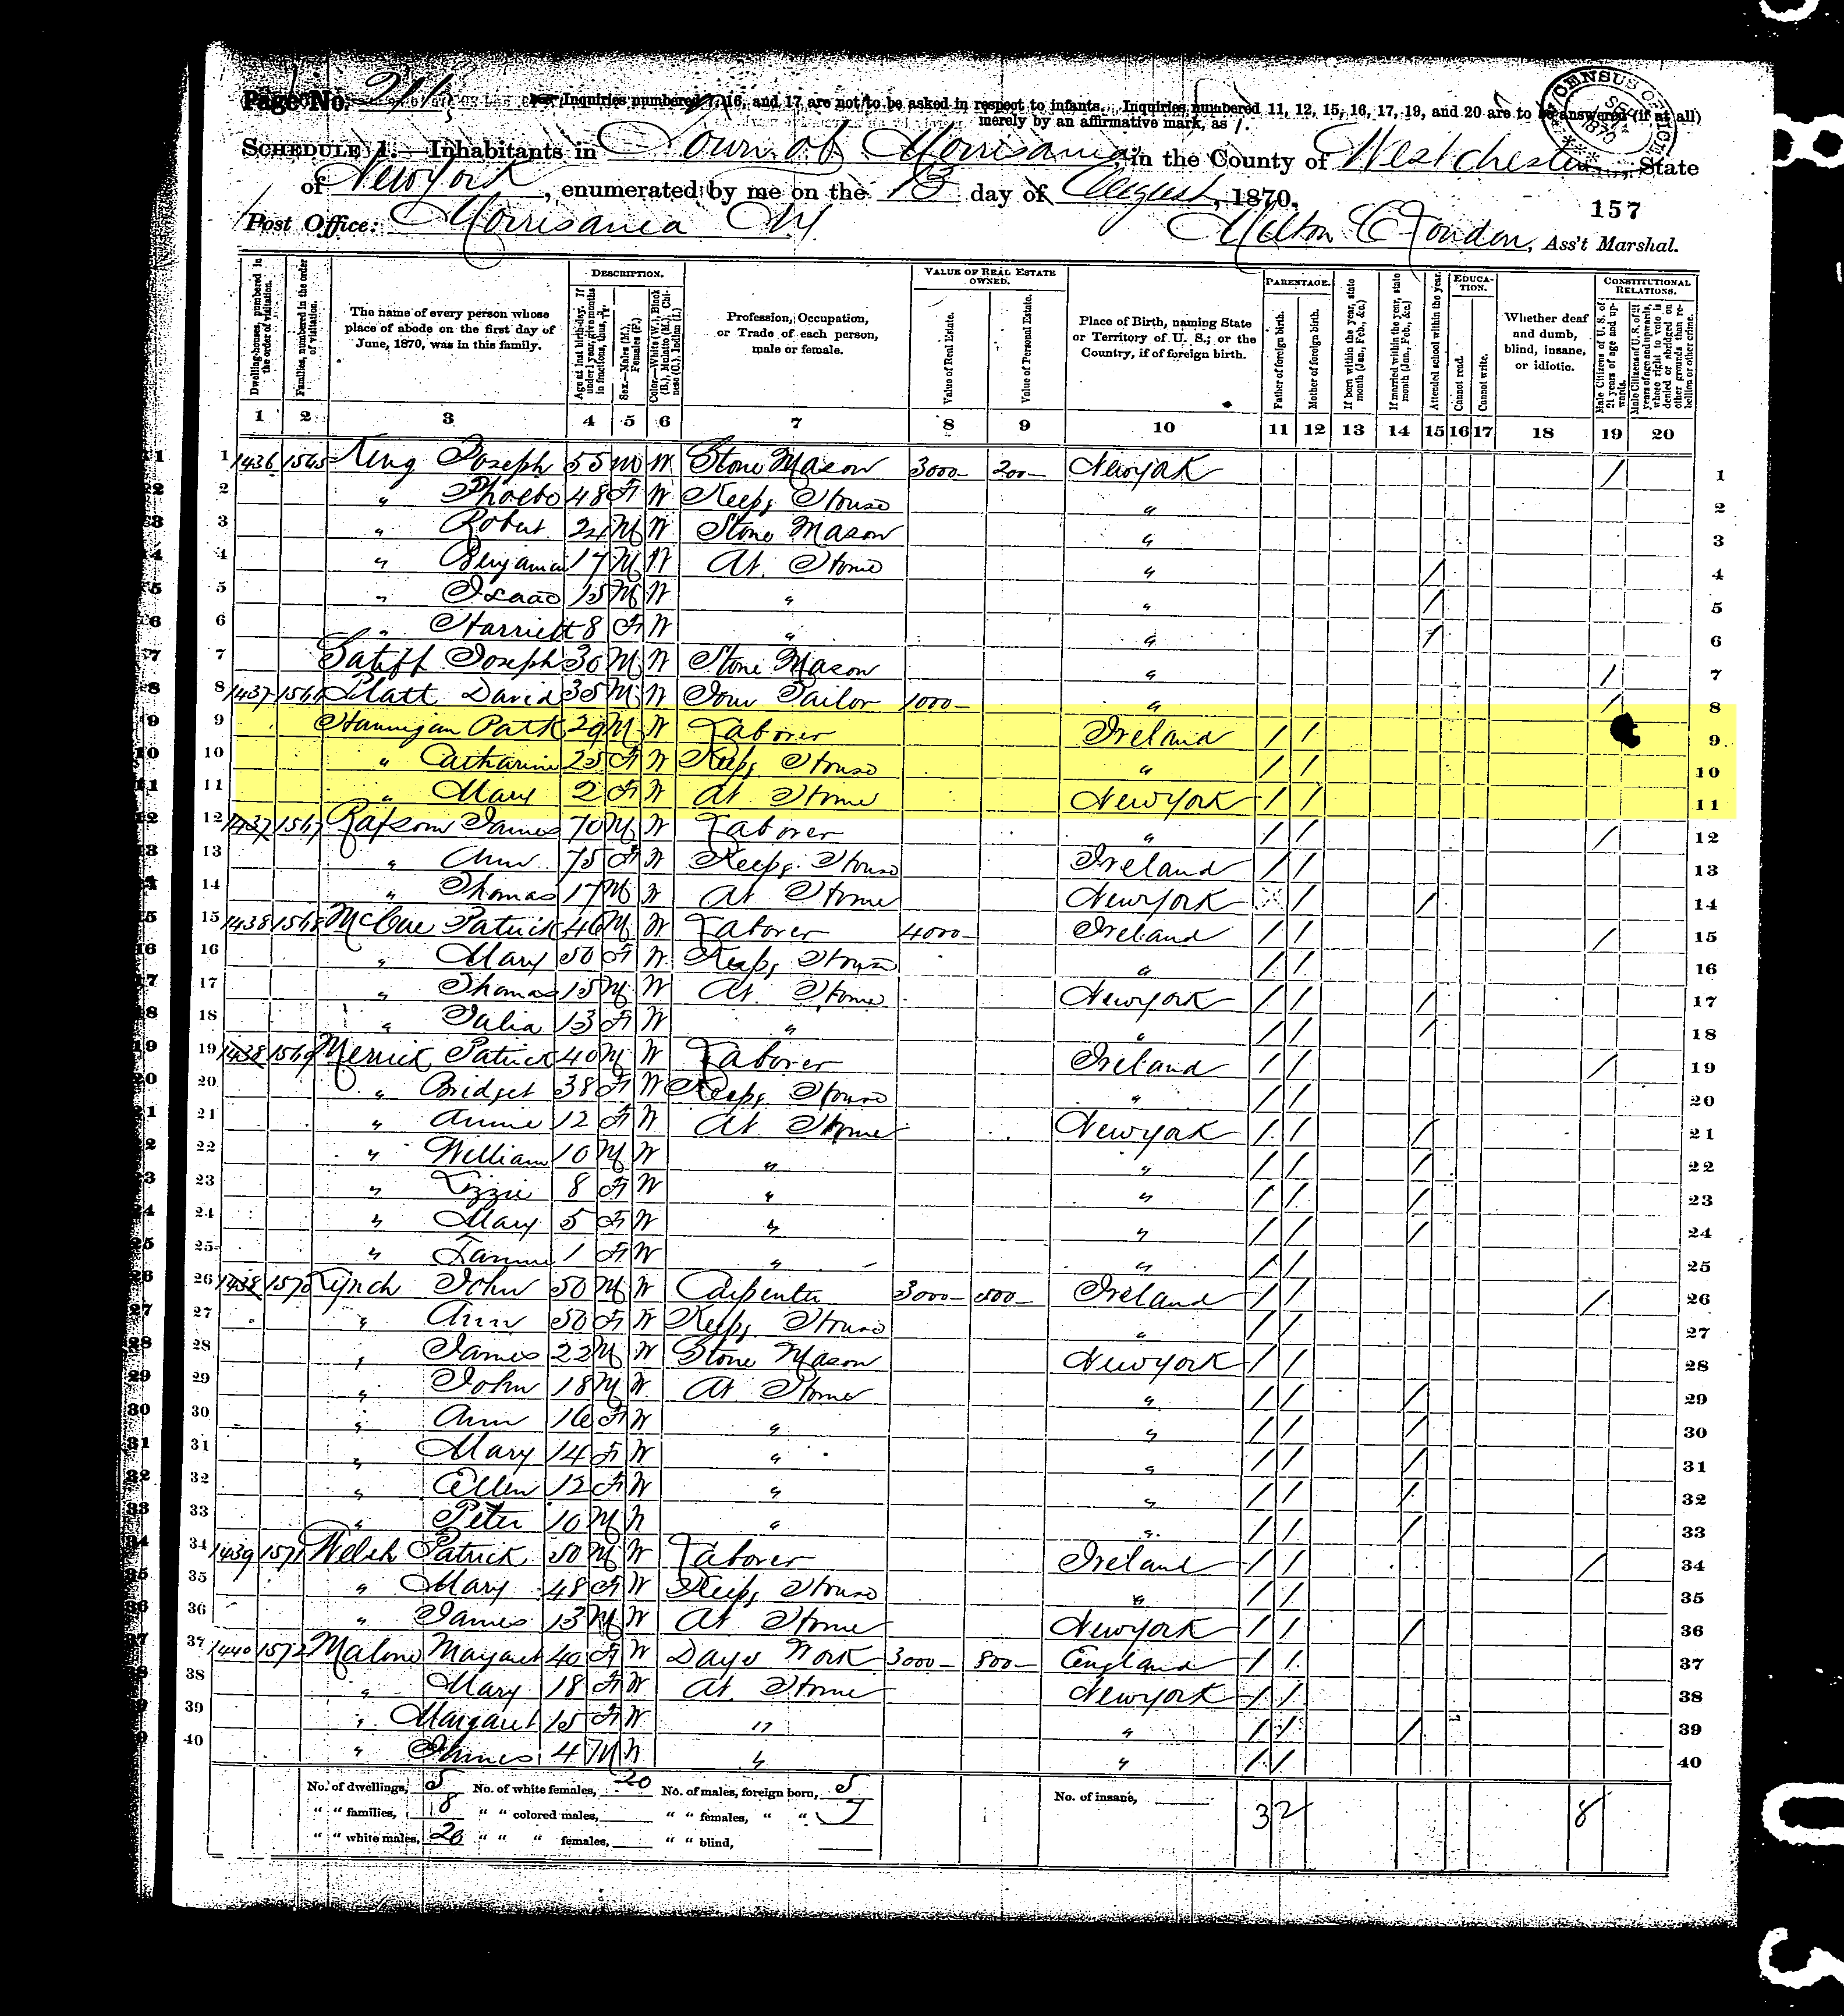 Page No. 216 Inquiries numbered 7, 16, and 17 are not to be asked in respect to infants. Inquiries numbered 11, 12, 15, 16, 17, 19, and 20 are to be answered (if at all)
merely by an affirmative mark, as /.
CENSUS OFFICE SEP 1870
SCHEDULE 1.—Inhabitants in Town of Morrisania, in the County of Westchester, State
of New York, enumerated by me on the 13 day of August, 1870.
157
Post Office: Morrisania NY
Milton Ass't Marshal.
Dwelling-houses, numbered in the order of visitation.
Families, numbered in the order of visitation.
The name of every person whose place of abode on the first day of June, 1870, was in this family.
DESCRIPTION.
Age at last birth-day. If under 1 year, give months in fractions, thus,
Sex.—Males (M.), Females (F.)
Color.—White (W.), Black (B.), Mulatto (M.), Chinese (C.), Indian (I.)
Profession, Occupation, or Trade of each person, male or female.
VALUE OF REAL ESTATE OWNED.
Value of Real Estate.
Value of Personal Estate.
Place of Birth, naming State or Territory of U. S.; or the Country, if of foreign birth.
PARENTAGE.
Father of foreign birth.
Mother of foreign birth.
If born within the year, state month (Jan., Feb., &c.)
If married within the year, state month (Jan., Feb., &c.)
Attended school within the year.
EDUCATION.
Cannot read.
Cannot write.
Whether deaf and dumb, blind, insane, or idiotic.
CONSTITUTIONAL RELATIONS.
Male Citizens of U. S. of 21 years of age and upwards.
Male Citizens of U. S. of 21 years of age and upwards, where right to vote is denied or abridged on other grounds than rebellion or other crime.
1 2 3 4 5 6 7 8 9 10 11 12 13 14 15 16 17 18 19 20
1 1436 1565 King Joseph 55 M W Stone Mason 3000 200 New York / 1
2 " Phoebe 48 F W Keeps House " 2
3 " Robert 24 M W Stone Mason " 3
4 " Benjamin 17 M W At Home " / 4
5 " Isaac 15 M W " " / 5
6 " Harriett 8 F W " " / 6
7 Joseph 30 M W Stone Mason " / 7
8 1437 1566 Platt David 35 M W Jour Tailor 1000 " / 8
9 Hannigan Patk 29 M W Laborer Ireland / / 9
10 " Catharine 25 F W Keeps House " / / 10
11 " Mary 2 F W At Home New York / / 11
12 1437 1567 James 70 M W Laborer " / / / 12
13 " Ann 75 F W Keeps House Ireland / / 13
14 " Thomas 17 M W At Home New York / / 14
15 1438 1568 McCue Patrick 46 M W Laborer 4000 Ireland / / / 15
16 " Mary 50 F W Keeps House " / / 16
17 " Thomas 15 M W At Home New York / / / 17
18 " Julia 13 F W " " / / / 18
19 1438 1569 Merrick Patrick 40 M W Laborer Ireland / / / 19
20 " Bridget 38 F W Keeps House " / / 20
21 " Annie 12 F W At Home New York / / / 21
22 " William 10 M W " " / / / 22
23 " Lizzie 8 F W " " / / / 23
24 " Mary 5 F W " " / / / 24
25 " Fannie 1 F W " " / / 25
26 1438 1570 Lynch John 50 M W Carpenter 3000 500 Ireland / / / 26
27 " Ann 50 F W Keeps House " / / 27
28 " James 22 M W Stone Mason New York / / 28
29 " John 18 M W At Home " / / / 29
30 " Ann 16 F W " " / / / 30
31 " Mary 14 F W " " / / / 31
32 " Ellen 12 F W " " / / / 32
33 " Peter 10 M W " " / / / 33
34 1439 1571 Welch Patrick 50 M W Laborer Ireland / / / 34
35 " Mary 48 F W Keeps House " / / 35
36 " James 13 M W At Home New York / / / 36
37 1440 1572 Malone Margaret 40 F W Days Work 3000 800 England / / 37
38 " Mary 18 F W At Home New York / / 38
39 " Margaret 15 F W " " / / / 39
40 " James 4 M W " " / / 40
No. of dwellings, 5 No. of white females, 20 No. of males, foreign born, 5 No. of insane,
" " families, 8 " " colored males, " " females, " " 7 32 8
" " white males, 20 " " " females, " " blind,